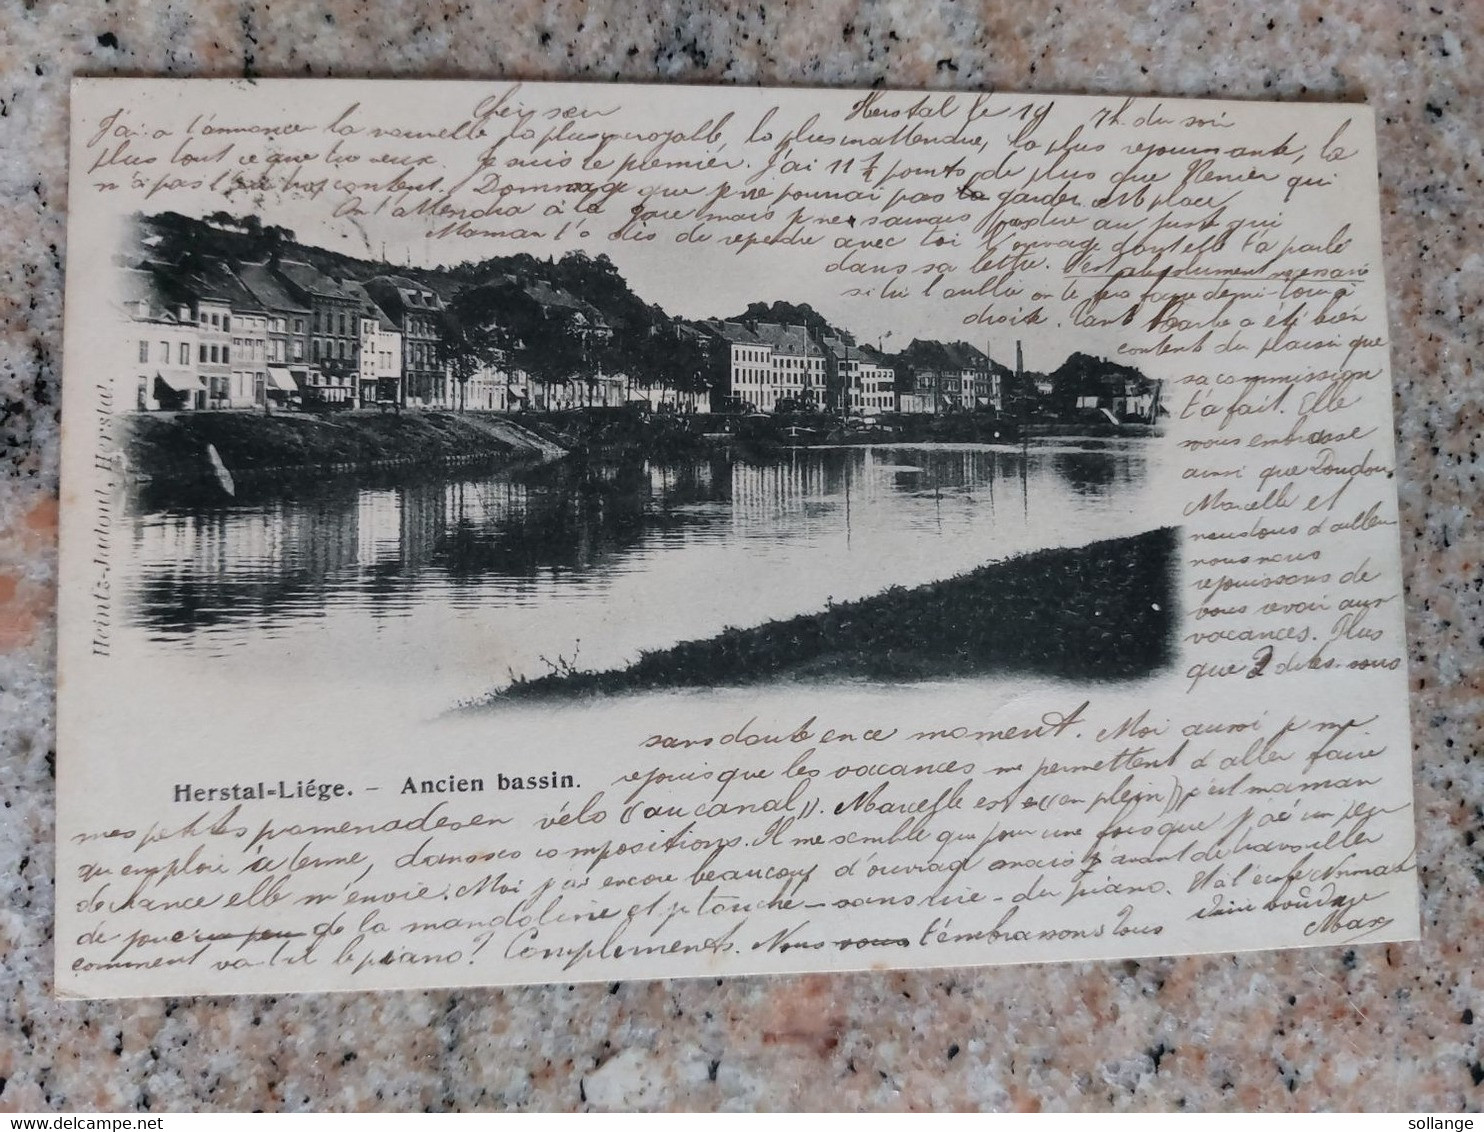 Herstal le 19 7h. du soir
J'ai à t'annoncer la nouvelle la plus incroyable, la plus inattendue, la plus réjouissante, la
plus tout ce que tu veux. Je suis le premier. J'ai 11 ½ points de plus que qui
n'a pas l'air trop content. Dommage que je ne pourrai pas la garder cette place.
On t'attendra à la gare mais je ne saurais pas dire au juste qui
Maman t'a dis de reprendre avec toi l'ouvrage dont elle t'a parlé
dans sa lettre. C'est absolument nécessaire
si tu l'oublie on te fera faire demi-tour à
droite. Tante a été bien
content du plaisir que
sa commission
t'a fait. Elle
vous embrasse
ainsi que Doudou,
Marcelle et
nous tous d'ailleurs
nous nous
réjouissons de
vous revoir aux
vacances. Plus
que 2 dites-vous
sans doute en ce moment. Moi aussi je me
réjouis que les vacances me permettent d'aller faire
mes petites promenades en vélo (au canal). Marcelle est (en plein) c'est maman
qui emploie à terme, dans ses compositions. Il me semble que pour une fois que j'ai un peu
de chance elle m'envie. Moi j'ai encore beaucoup d'ouvrage mais avant de travailler
de jouer un peu de la mandoline et je touche - sans rire - du piano. Et a l'école Normale
comment va t'il le piano? Compliments. Nous vous t'embrassons tous
Max
Heintz-Jadoul, Herstal.
Herstal-Liége. – Ancien bassin.
delcampe.net
sollange